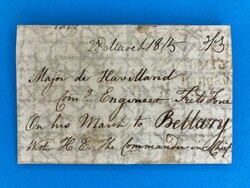 2d March 1815
Major de Havilland
Comg. Engineer Field Force
On his March to Bellary
With H. E. The Commander in Chief